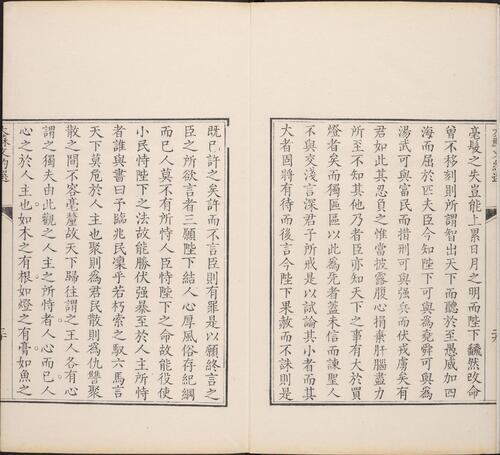 毫髮之失豈能上累日月之明而陛下飜然改命
曾不移刻則所謂智出天下而聽於至愚威加四
海而屈於匹夫臣今知陛下可與為堯舜可與為
湯武可與富民而措刑可與强兵而伏戎虜矣有
君如此其忍負之惟當披露腹心捐棄肝腦盡力
所至不知其他乃者臣亦知天下之事有大於買
燈者矣而獨區區以此為先者蓋未信而諫聖人
不與交淺言深君子所戒是以試論其小者而其
大者固將有待而後言今陛下果赦而不誅則是
既已許之矣許而不言臣則有罪是以願終言之
臣之所欲言者三願陛下結人心厚風俗存紀綱
而已人莫不有所恃人臣恃陛下之命故能役使
小民恃陛下之法故能勝伏强暴至於人主所恃
者誰與書曰予臨兆民凜乎若朽索之馭六馬言
天下莫危於人主也聚則為君民散則為仇讐聚
散之間不容毫釐故天下歸往謂之王人各有心
謂之獨夫由此觀之人主之所恃者人心而已人
心之於人主也如木之有根如燈之有膏如魚之